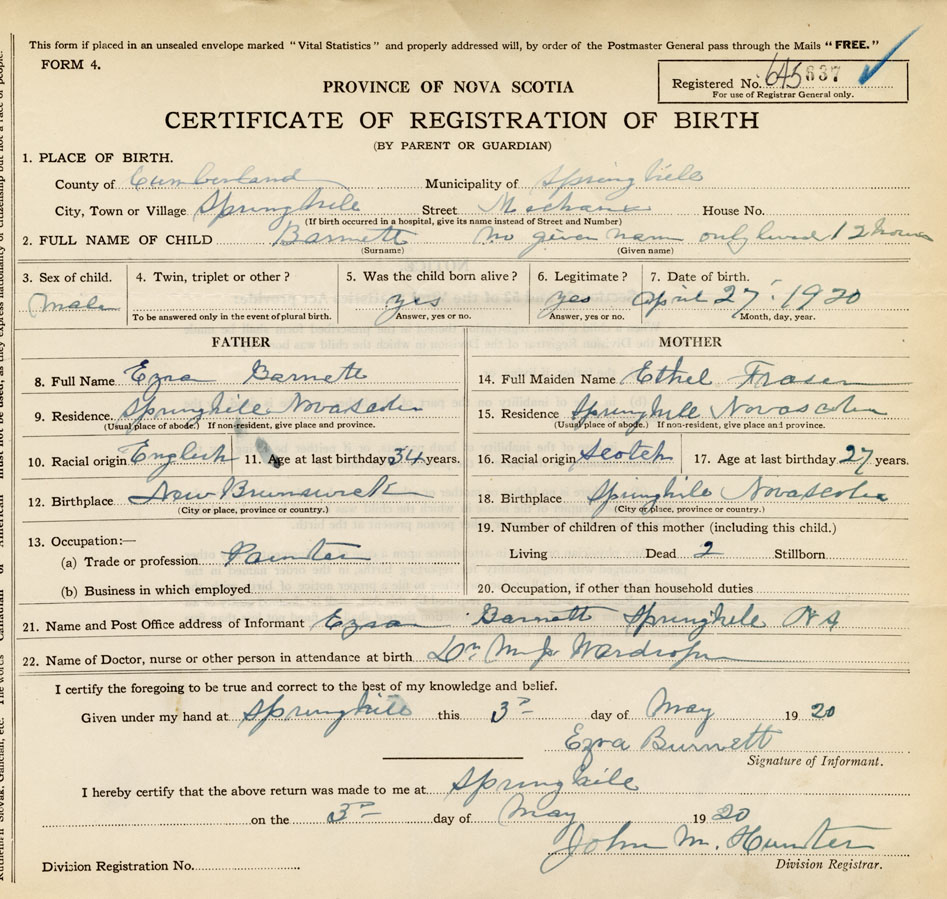 This form if placed in an unsealed envelope marked "Vital Statistics" and properly addressed will, by order of the Postmaster General pass through the Mails "FREE."
FORM 4.
PROVINCE OF NOVA SCOTIA
Registered No. 645 637
For use of Registrar General only.
CERTIFICATE OF REGISTRATION OF BIRTH
(BY PARENT OR GUARDIAN)
1. PLACE OF BIRTH.
County of Cumberland Municipality of Springhill
City, Town or Village Springhill Street Mechanic House No.
(If birth occurred in a hospital, give its name instead of Street and Number)
2. FULL NAME OF CHILD Barnett no given name only lived 12 hours
(Surname) (Given name)
3. Sex of child. 4. Twin, triplet or other? 5. Was the child born alive? 6. Legitimate? 7. Date of birth.
Male yes yes April 27. 1920
To be answered only in the event of plural birth. Answer, yes or no. Answer, yes or no. Month, day, year.
FATHER MOTHER
8. Full Name Ezra Barnett 14. Full Maiden Name Ethel Fraser
9. Residence Springhill Novascotia 15. Residence Springhill Novascotia
(Usual place of abode.) If non-resident, give place and province. (Usual place of abode.) If non-resident, give place and province.
10. Racial origin English 11. Age at last birthday 34 years. 16. Racial origin Scotch 17. Age at last birthday 27 years.
12. Birthplace New Brunswick 18. Birthplace Springhill Novascotia
(City or place, province or country.) (City or place, province or country.)
13. Occupation:— 19. Number of children of this mother (including this child.)
(a) Trade or profession Painter Living Dead 2 Stillborn
(b) Business in which employed 20. Occupation, if other than household duties
21. Name and Post Office address of Informant Ezra Barnett Springhill N S
22. Name of Doctor, nurse or other person in attendance at birth Dr Wardrope
I certify the foregoing to be true and correct to the best of my knowledge and belief.
Given under my hand at Springhill this 3rd day of May 1920
Ezra Burnett
Signature of Informant.
I hereby certify that the above return was made to me at Springhill
on the 3rd day of May 1920
John M. Hunter
Division Registration No. Division Registrar.